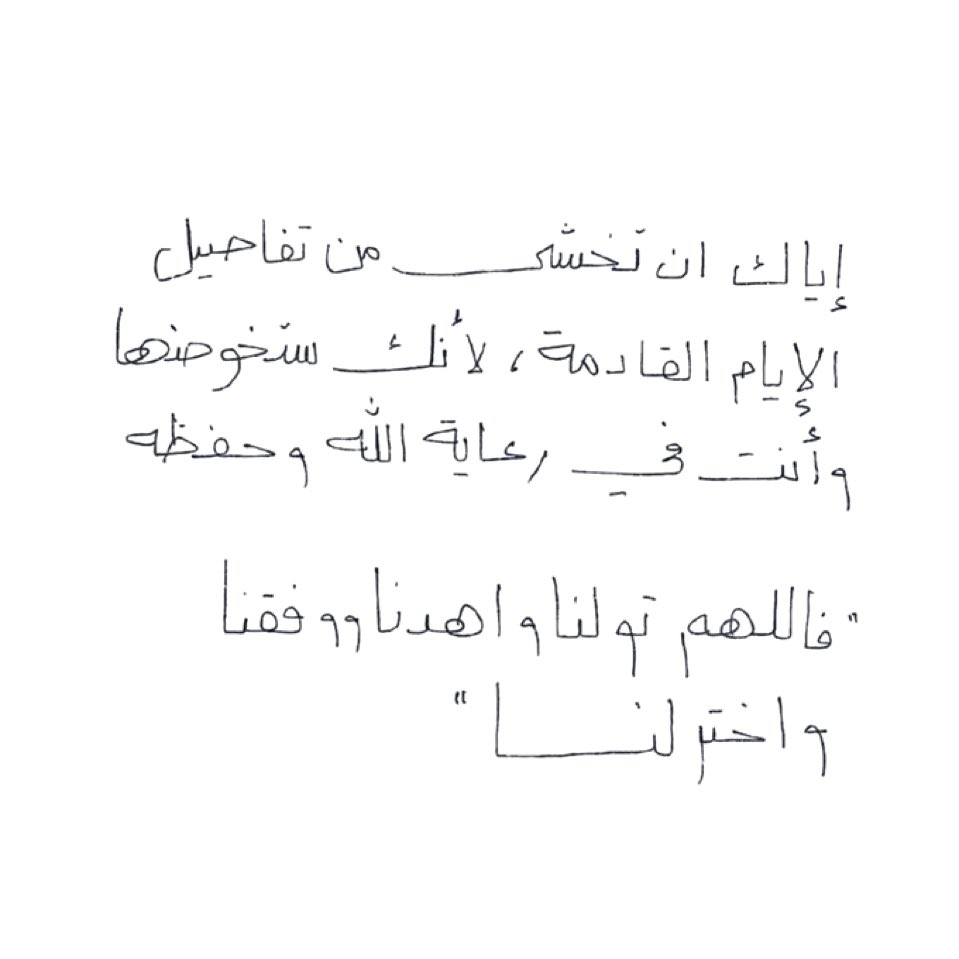 إياك ان تخشى من تفاصيل
الإيام القادمة، لأنك ستخوضها
وأنت في رعاية الله وحفظه
"فاللهم تولنا واهدنا ووفقنا
واختر لنا"